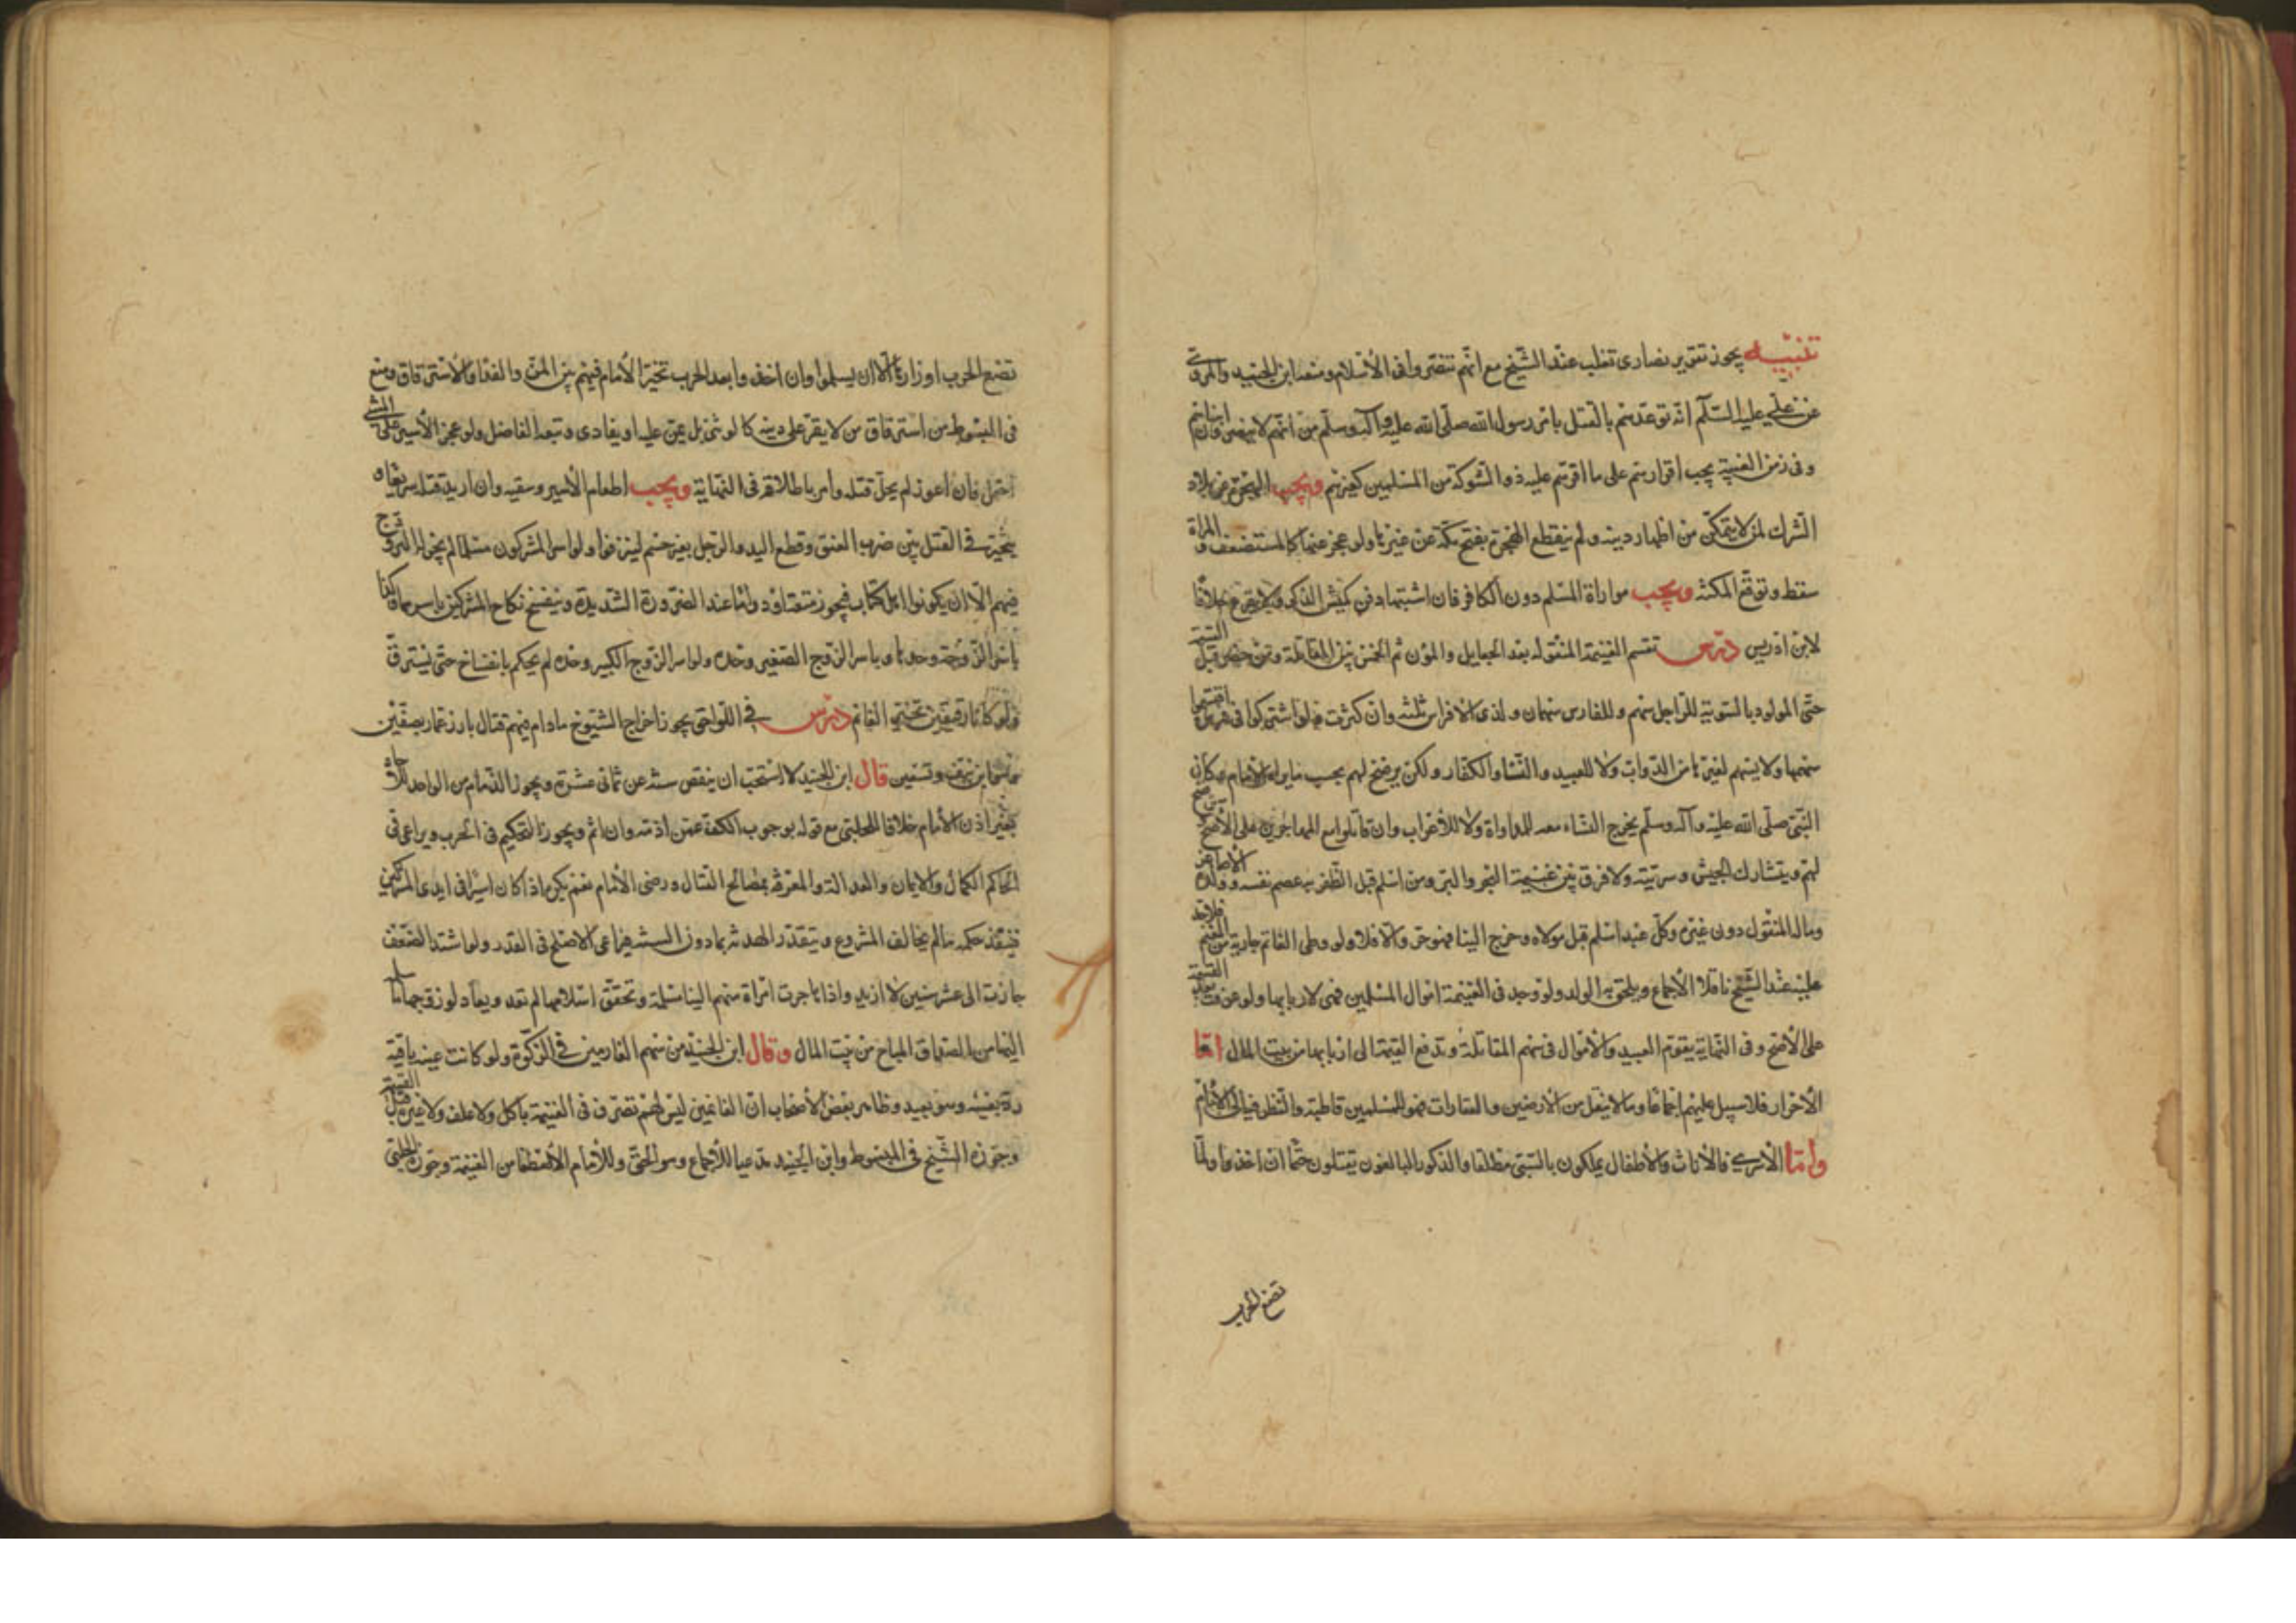 تنبيه يجوز تقرير نصارى تغلب عند الشيخ مع انهم تنصروا فى الاسلام ومنعه ابن الجنيد والمروى
عن على عليه السلام انه توعدهم بالقتل بامر رسول الله صلى الله عليه وآله وسلم من انهم لا ابنائهم
وفى زمن الغيبة يجب اقرارهم على ما اقرهم عليه ذو الشوكة من المسلمين كغيرهم ويجب الهجرة عن بلاد
الشرك لمن لا يتمكن من اظهار دينه ولم ينقطع الهجرة بفتح مكة عن غيرها ولو عجز عنها كالمستضعف والمراة
سقط وتوقع المكنة ويجب مواراة المسلم دون الكافر فان اشتبها دفن كميش الذكر خلافا
لابن ادريس درس تقسم الغنيمة المنقولة بعد الجعايل والمؤن ثم الخمس بين المقاتلة ومن حضر قبل القسمة
حتى المولود بالسوية للراجل سهم وللفارس سهمان ولذى الافراس ثلثة وان كثرت فلو اشتركوا فى فرس اقتسموا
سهمها ولا يسهم لغيرها من الدواب ولا للعبيد والنساء والكفار ولكن يرضخ لهم بحسب ما يراه الامام وكان
النبى صلى الله عليه وآله وسلم يخرج النساء معه للمداواة ولا للاعراب وان قاتلوا مع المهاجرين على الاصح
لهم ويتشارك الجيش وسريته ولا فرق بين غنيمة البحر والبر ومن اسلم قبل الظفر به عصم نفسه وولده الاصاغر
وماله المنقول دون غيره وكل عبد اسلم قبل مولاه وخرج الينا فهو حر والا فلا ولو وطى الغانم جارية من المغنم فلا حد
عليه عند الشيخ ناقلا الاجماع ويلحق به الولد ولو وجد فى الغنيمة اموال المسلمين فهى لاربابها ولو عرفت بعد القسمة
على الاصح وفى النهاية يقوم العبيد والاموال فى سهم المقاتلة وتدفع القيمة الى اربابها من بيت المال اما
الاحرار فلا سبيل عليهم اجماعا وما لا ينقل من الارضين والعقارات فهو للمسلمين قاطبة والنظر فيه الى الامام
واما الاسرى فالاناث والاطفال يملكون بالسبى مطلقا والذكور البالغون يقتلون حتما ان اخذوا ولما
تضع الحرب
تضع الحرب اوزارها الا ان يسلموا وان اخذوا بعد الحرب تخير الامام فيهم بين المن والفداء والاسترقاق ومنع
فى المبسوط من استرقاق من لا يقر على دينه كالوثنى بل يمن عليه او يفادى وتبعه الفاضل ولو عجز الاسير على المشى
احتمل فان اعوز لم يحل قتله وامر باطلاقه فى النهاية ويجب اطعام الاسير وسقيه وان اريد قتله سريعا
يتخير فى القتل بين ضرب العنق وقطع اليد والرجل بغير حسم لينزفوا ولو اسر المشركون مسلما لم يجز له التزوج
فيهم الا ان يكونوا اهل كتاب فيجوز متعة او دواما عند الضرورة الشديدة وينفسخ نكاح المشركين باسرهما وكذا
باسر الزوجة وحدها وباسر الزوج الصغير وحده ولو اسر الزوج الكبير وحده لم يحكم بانفساخ حتى يسترق
ولو كانا رقيقين تخير الغانم درس فى اللواحق يجوز اخراج الشيوخ ما دام فيهم قتال بارز عمار بصفين
وهو ابن نيف وتسعين قال ابن الجنيد لا استحب ان ينقص سنه عن ثمانى عشرة ويجوز الذمام من الواحد
بغير اذن الامام خلافا للحلبى مع قوله بوجوب الكف عمن اذمه وان اثم ويجوز التحكيم فى الحرب ويراعى فى
الحاكم الكمال والايمان والعدالة والمعرفة بمصالح القتال ورضى الامام نعم يكره اذا كان اسيرا فى ايدى المشركين
فينفذ حكمه ما لم يخالف المشروع ويتقدر الهدنة بما دون السنة فيراعى الاصلح فى القدر ولو اشتد الضعف
جازت الى عشر سنين لا ازيد واذا هاجرت امراة منهم الينا مسلمة وتحقق اسلامها لم تعد ويعاد لو زوجها
اليها من الصداق المباح من بيت المال وقال ابن الجنيد من سهم الغارمين فى الزكوة ولو كانت عينه باقية
رده بعينه وهو بعيد وظاهر بعض الاصحاب ان الغانمين ليس لهم تصرف فى الغنيمة باكل ولا علف ولا غيره قبل القسمة
وجوزه الشيخ فى المبسوط وابن الجنيد مدعيا للاجماع وهو الحق وللامام الاصطفا من الغنيمة وجوز الحلبى